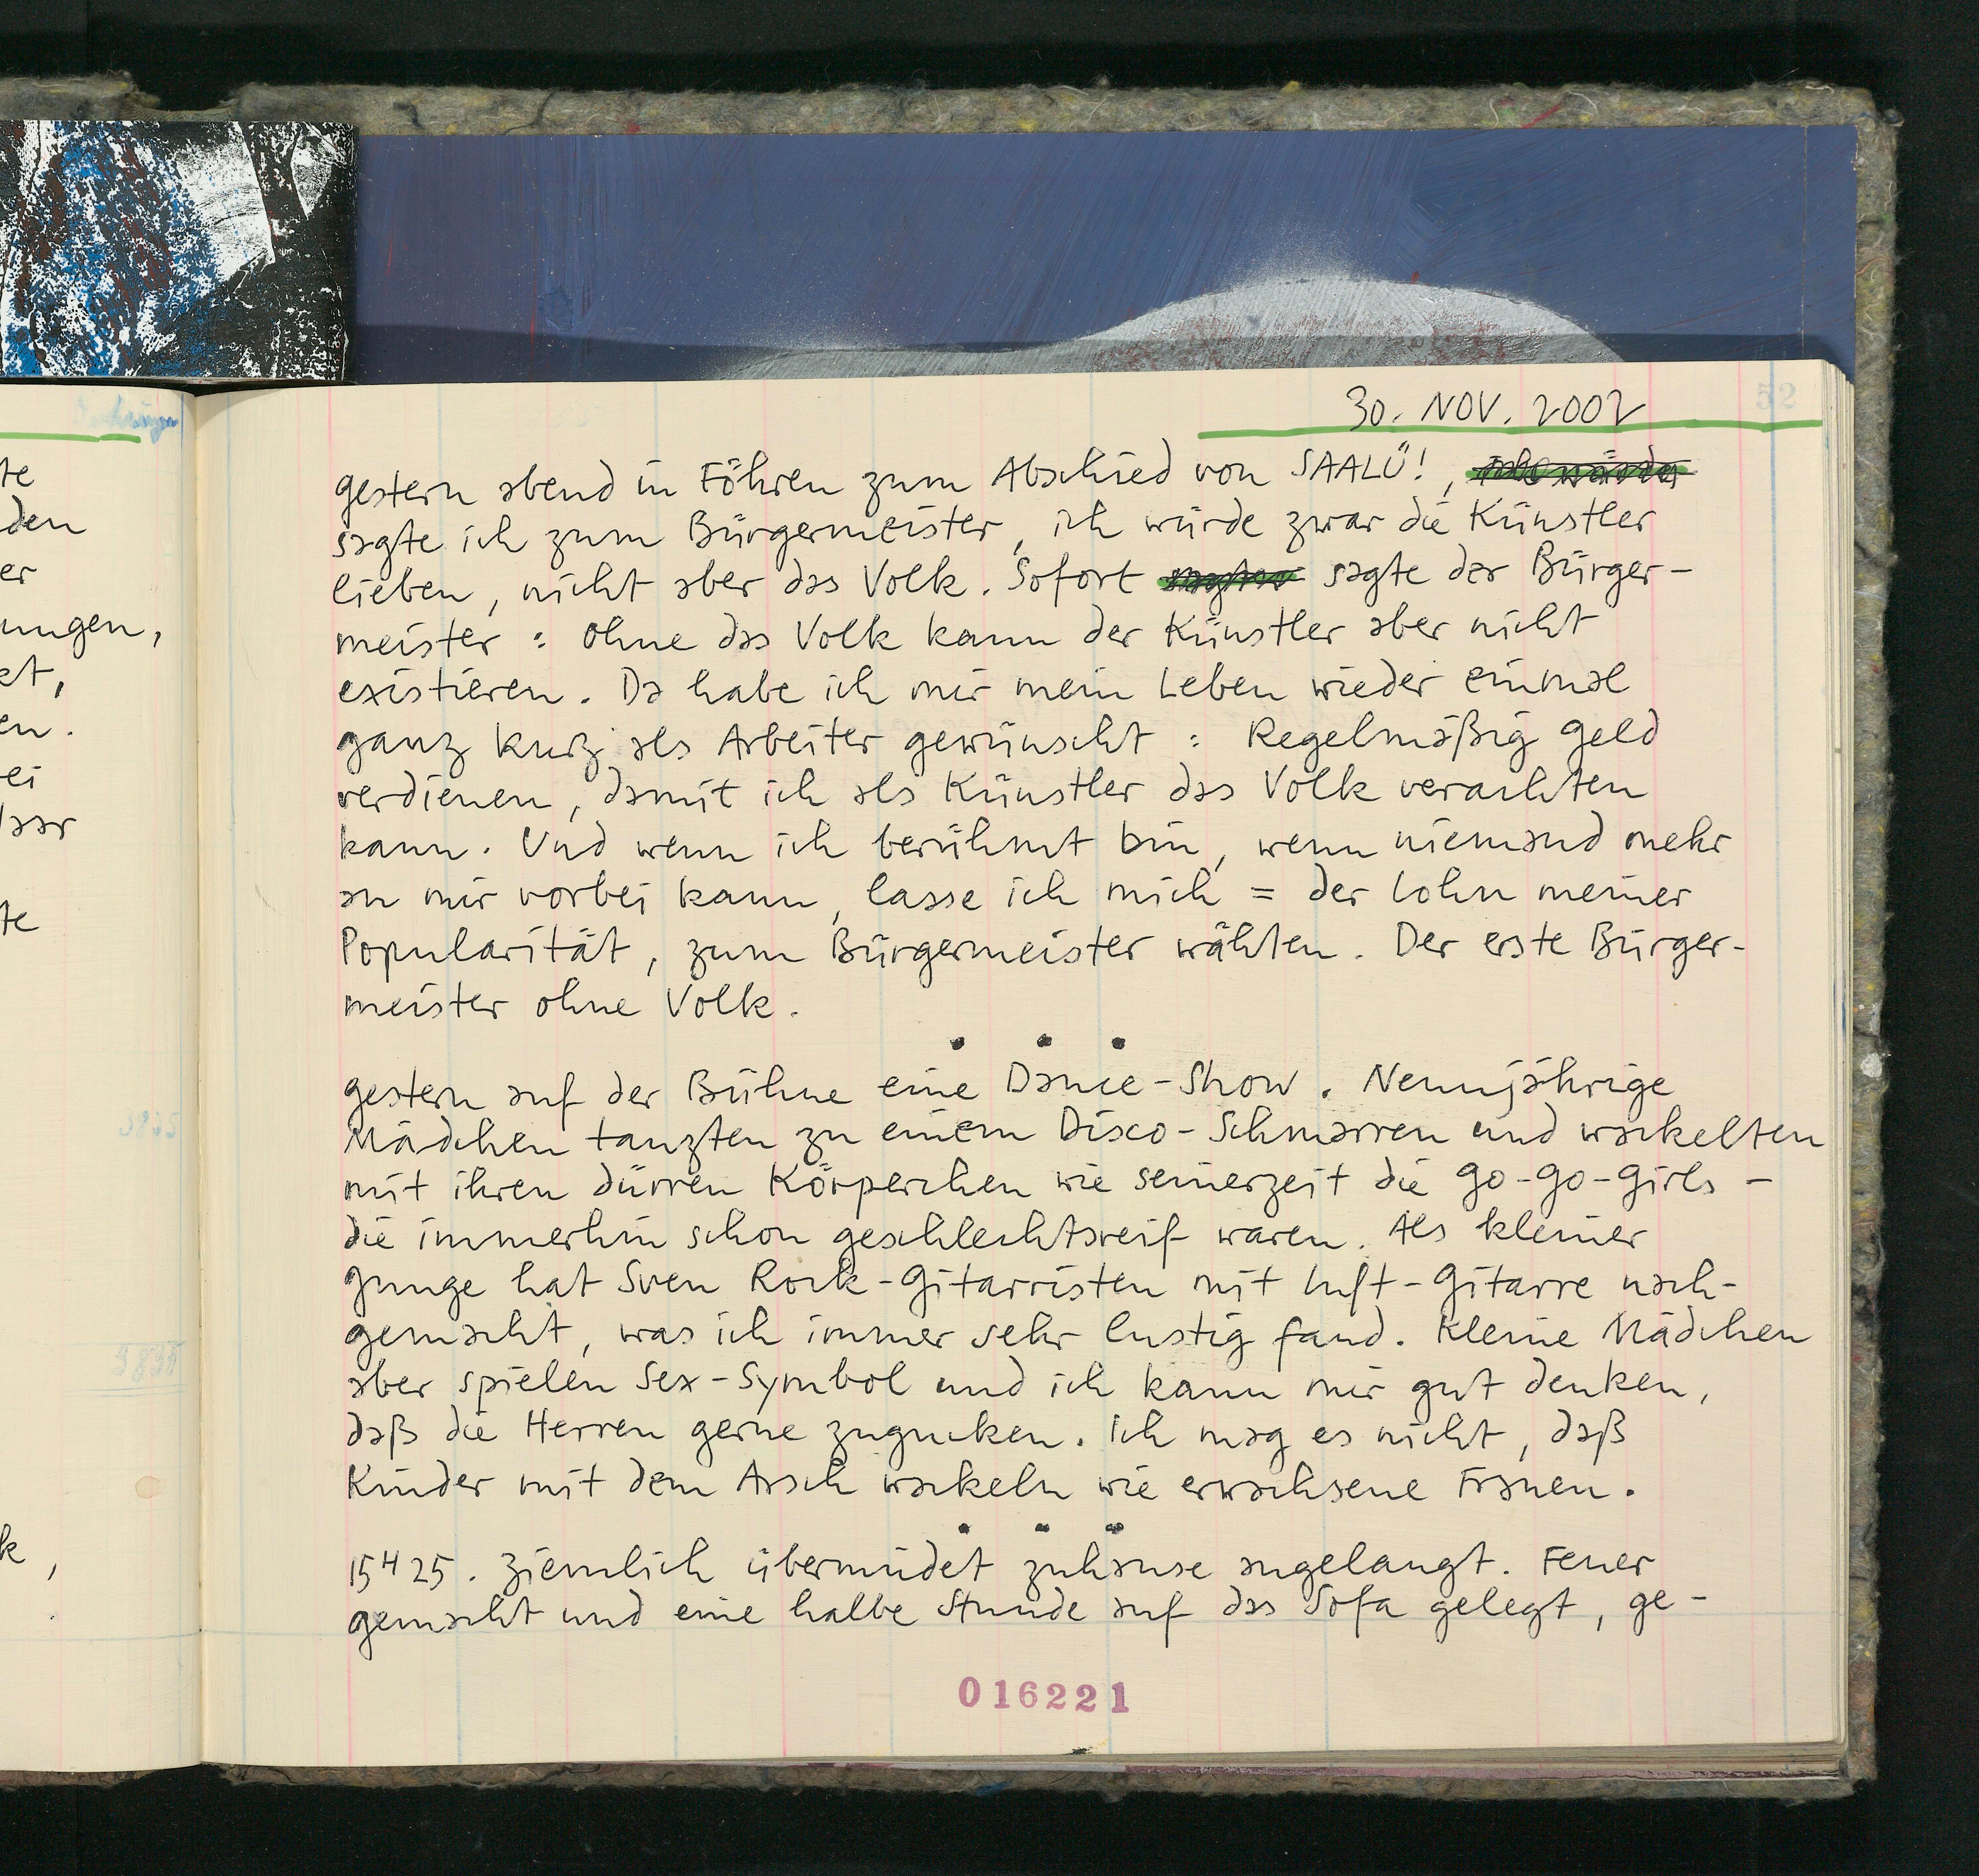 30. NOV. 2002
52
gestern abend in Föhren zum Abschied von SAALÜ!,
sagte ich zum Bürgermeister, ich würde zwar die Künstler
lieben, nicht aber das Volk. Sofort sagte der Bürger-
meister : ohne das Volk kann der Künstler aber nicht
existieren. Da habe ich mir mein Leben wieder einmal
ganz kurz als Arbeiter gewünscht : Regelmäßig Geld
verdienen, damit ich als Künstler das Volk verachten
kann. Und wenn ich berühmt bin, wenn niemand mehr
an mir vorbei kann, lasse ich mich = der Lohn meiner
Popularität, zum Bürgermeister wählen. Der erste Bürger-
meister ohne Volk.
gestern auf der Bühne eine Dance-Show. Neunjährige
Mädchen tanzten zu einem Disco-Schmarren und wackelten
mit ihren dürren Körperchen wie seinerzeit die Go-Go-Girls -
die immerhin schon geschlechtsreif waren. Als kleiner
Junge hat Sven Rock-Gitarristen mit Luft-Gitarre nach-
gemacht, was ich immer sehr lustig fand. Kleine Mädchen
aber spielen Sex-Symbol und ich kann mir gut denken,
daß die Herren gerne zugucken. Ich mag es nicht, daß
Kinder mit dem Arsch wackeln wie erwachsene Frauen.
15H25. Ziemlich übermüdet zuhause angelangt. Feuer
gemacht und eine halbe Stunde auf das Sofa gelegt, ge-
016221
te
den
er
ungen,
kt,
en.
ei
te
k,